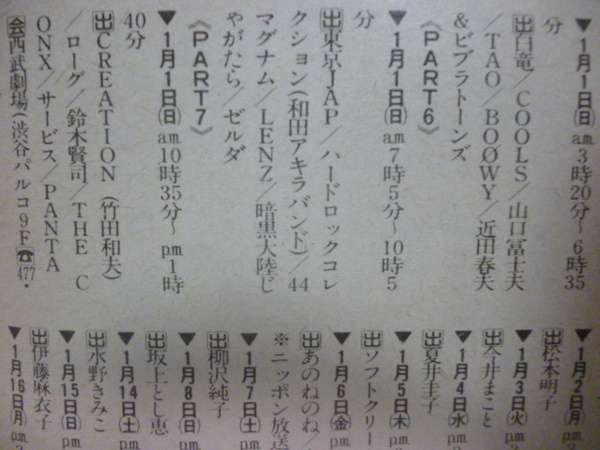 ▼1月1日㊐a.m.3時20分〜6時35
分
出白竜/COOLS/山口冨士夫
/TAO/BOØWY/近田春夫
&ビブラトーンズ
《PART6》
▼1月1日㊐a.m.7時5分〜10時5
分
出東京JAP/ハードロックコレ
クション(和田アキラバンド)/44
マグナム/LENZ/暗黒大陸じ
ゃがたら/ゼルダ
《PART7》
▼1月1日㊐a.m.10時35分〜p.m.1時
40分
出CREATION(竹田和夫)
/ローグ/鈴木賢司/THE C
ONX/サービス/PANTA
会西武劇場(渋谷パルコ9F☎477・
▼1月2日㊊p.m.
出松本明子
▼1月3日㊋p.m.
出今井まこと
▼1月4日㊌p.m.
出夏井圭子
▼1月5日㊍p.m.
出ソフトクリー
▼1月6日㊎p.m.
出あのねのね/
※ニッポン放送
▼1月7日㊏p.m.
出柳沢純子
▼1月8日㊐p.m.
出坂上とし恵
▼1月14日㊏p.m.
出水野きみこ
▼1月15日㊐p.m.
出伊藤麻衣子
▼1月16日㊊p.m.